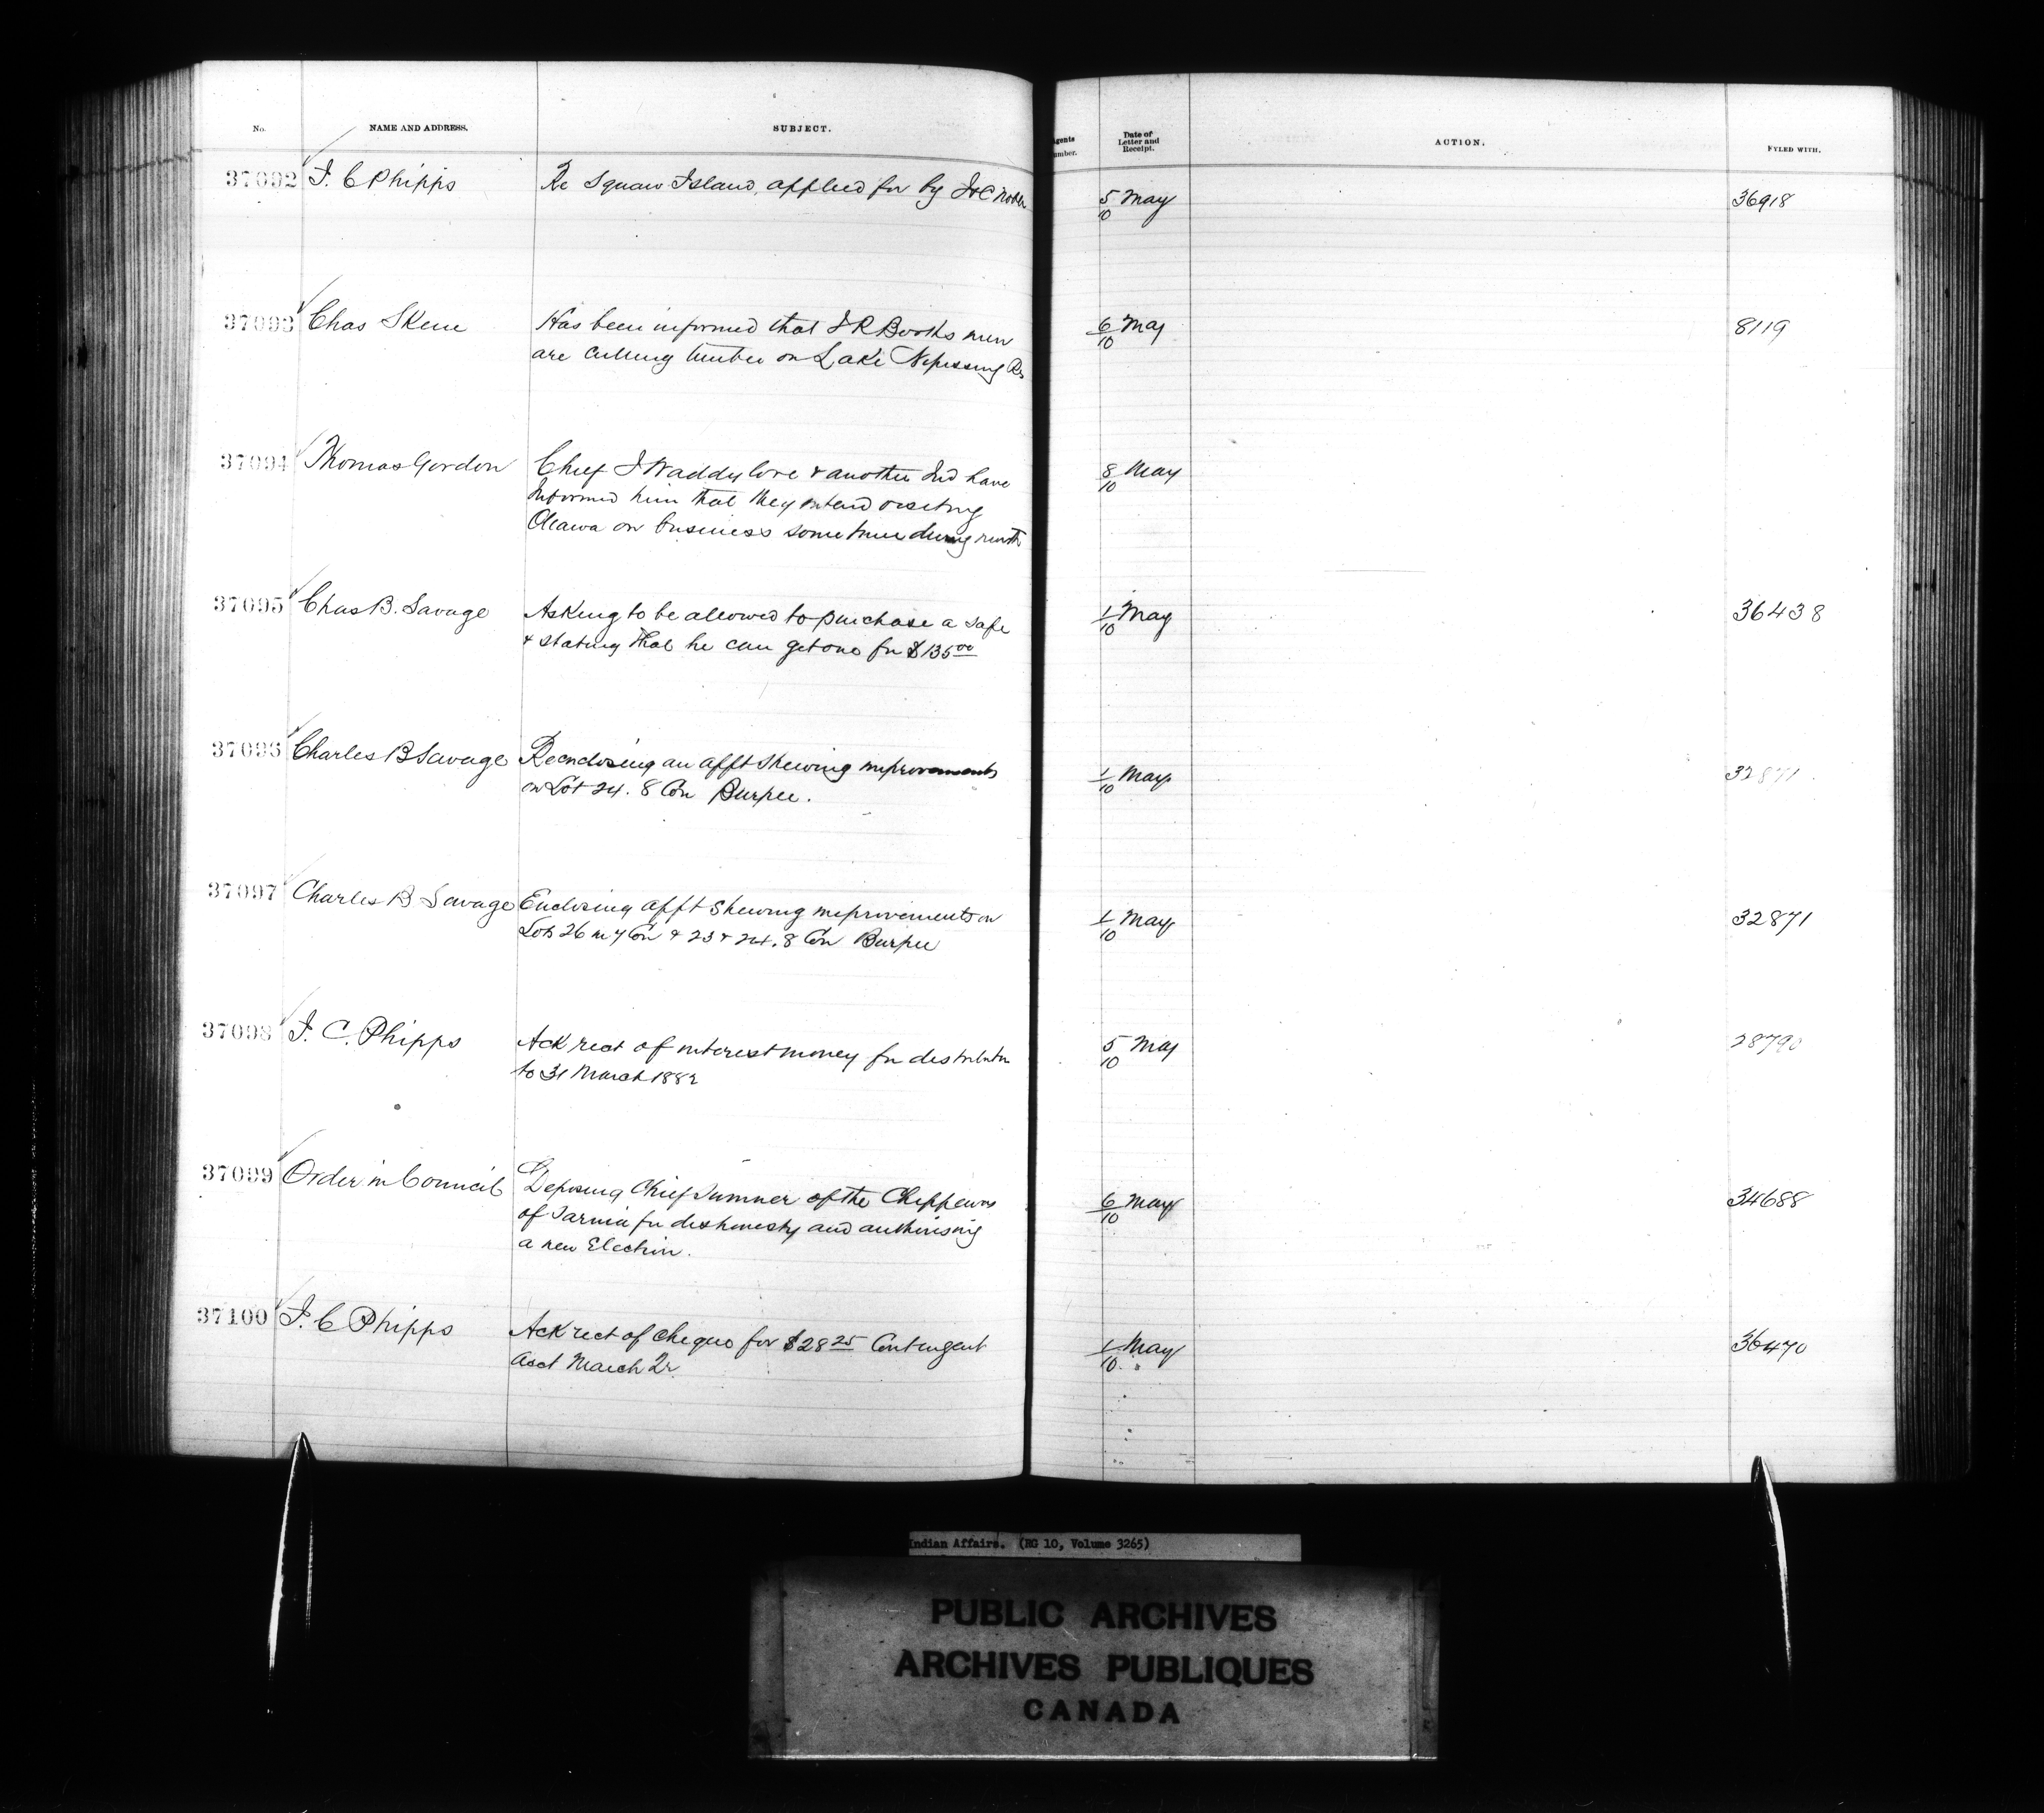 No. NAME AND ADDRESS. SUBJECT. Agents Number. Date of Letter and Receipt. ACTION. FYLED WITH.
37092 J. C Phipps Re Squaw Island, applied for by J & C Noble 5/10 May 36918
37093 Chas Skene Has been informed that J R Booths men 6/10 May 8119
are cutting timber on Lake Nipissing Rs
37094 Thomas Gordon Chief J Waddylove & another Ind have 8/10 May
Informed him that they intend visiting
Ottawa on business some time during month
37095 Chas B. Savage Asking to be allowed to purchase a safe 1/10 May 36438
& stating that he can get one for $135 00
37096 Charles B Savage Re enclosing an afft shewing improvements 1/10 May 32871
on Lot 24. 8 Con Burpee.
37097 Charles B Savage Enclosing afft shewing improvements on 1/10 May 32871
Lots 26 in 7 Con & 23 & 24. 8 Con Burpee
37098 J. C. Phipps Ack rect of interest money for distributn 5/10 May 28790
to 31 March 1882
37099 Order in Council Deposing Chief Sumner of the Chippewas 6/10 May 34688
of Sarnia for dishonesty and authorising
a new Election.
37100 J. C Phipps Ack rect of cheque for $28 25 Contingent 1/10 May 36470
acct March Qr.
Indian Affairs. (RG 10, Volume 3265)
PUBLIC ARCHIVES
ARCHIVES PUBLIQUES
CANADA